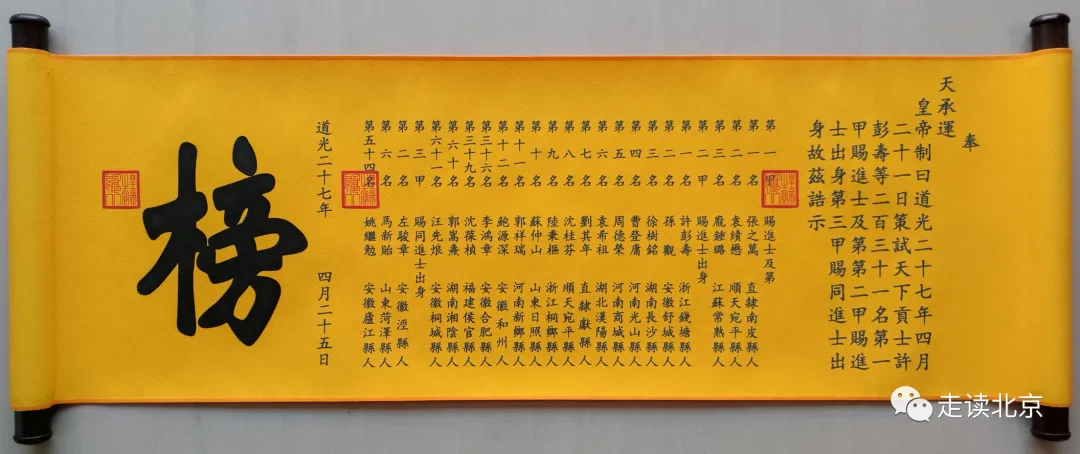 奉
天承運
皇帝制曰道光二十七年四月
二十一日策試天下貢士許
彭壽等二百三十一名第一
甲賜進士及第第二甲賜進
士出身第三甲賜同進士出
身故茲誥示
第一甲 賜進士及第
第一名 張之萬 直隸南皮縣人
第二名 袁績懋 順天宛平縣人
第三名 龐鍾璐 江蘇常熟縣人
第二甲 賜進士出身
第一名 許彭壽 浙江錢塘縣人
第二名 孫觀 安徽舒城縣人
第三名 徐樹銘 湖南長沙縣人
第四名 曹登庸 河南光山縣人
第五名 周德榮 河南商城縣人
第六名 袁希祖 湖北漢陽縣人
第七名 劉其年 直隸獻縣人
第八名 沈桂芬 順天宛平縣人
第九名 陸秉樞 浙江桐鄉縣人
第十名 蘇仲山 山東日照縣人
第十一名 郭祥瑞 河南新鄉縣人
第十二名 鮑源深 安徽和州人
第三十六名 李鴻章 安徽合肥縣人
第三十九名 沈葆楨 福建侯官縣人
第六十名 郭嵩燾 湖南湘陰縣人
第六十一名 汪先烺 安徽桐城縣人
第三甲 賜同進士出身
第二名 左駿章 安徽涇縣人
第六名 馬新貽 山東菏澤縣人
第五十四名 姚繼勉 安徽廬江縣人
道光二十七年 四月二十五日
榜
走读北京